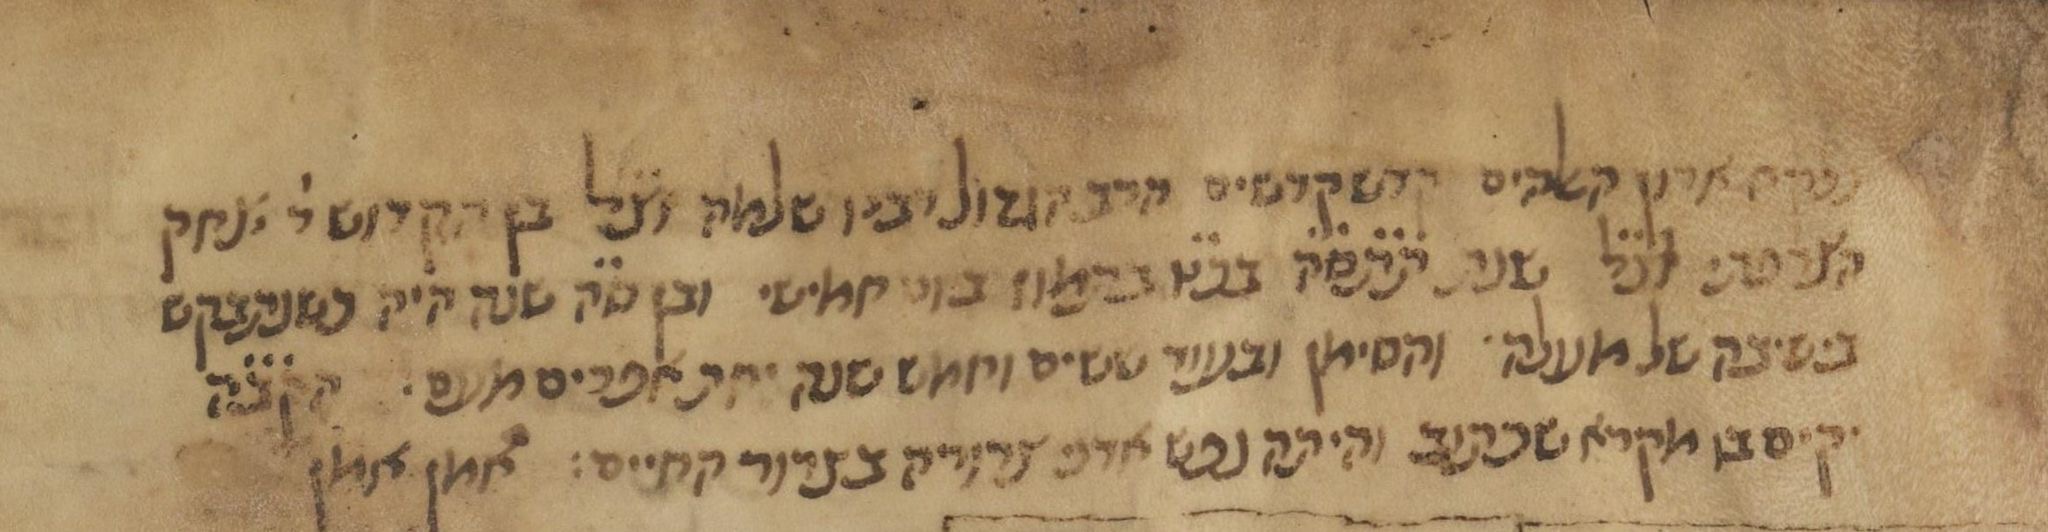 נלקח ארון האלהים קדש קדשים הרב הגדול רבינו שלמה זצ״ל בן הקדוש ר' יצחק
הצרפתי זצ״ל שנת תתס״ה בכ״ט בתמוז ביום חמישי ובן ס״ה שנה היה כשנתבקש
בישיבה של מעלה. והסימן ובעוד ששים וחמש שנה יחת אפרים מעם. הקב״ה
יקיים בו מקרא שכתוב והיתה נפש אדני צרורה בצרור החיים: אמן אמן